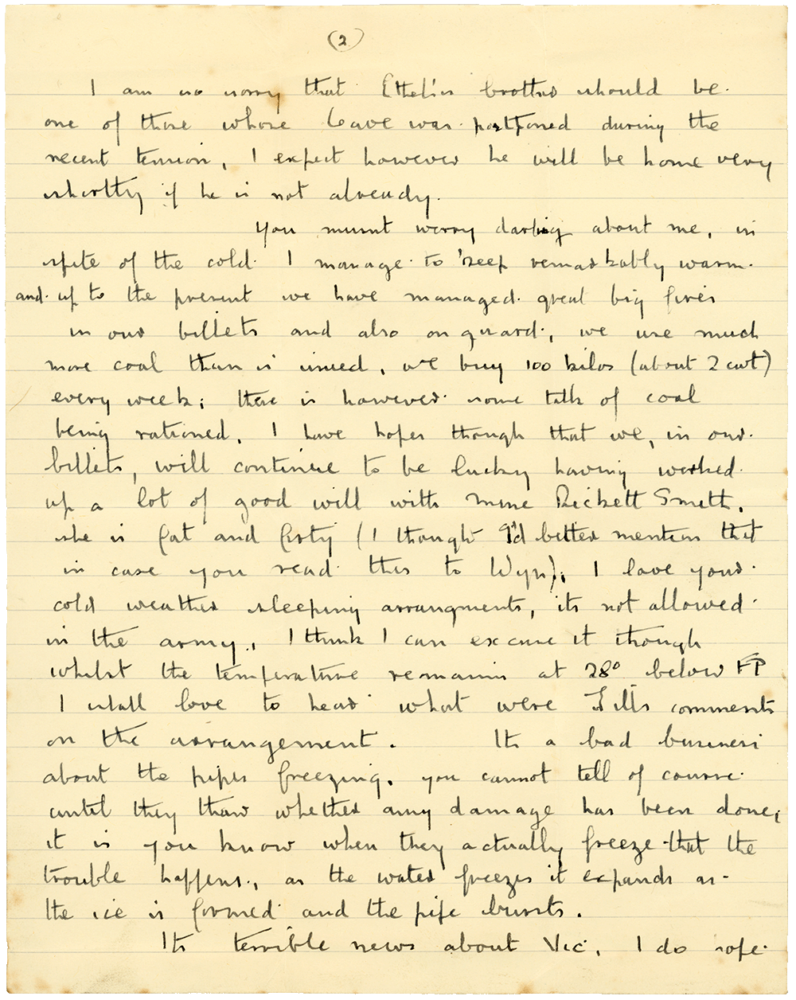 (2)
I am so sorry that Ethel's brother should be
one of those whose leave was postponed during the
recent tension, I expect however he will be home very
shortly if he is not already.
You musnt worry darling about me, in
spite of the cold I manage to keep remarkably warm
and up to the present we have managed great big fires
in our billets and also on guard, we use much
more coal than is issued, we buy 100 kilos (about 2 cwt)
every week; there is however some talk of coal
being rationed. I have hopes though that we, in our
billets, will continue to be lucky having worked
up a lot of good will with Mme Smeth,
she is fat and forty (I thought I'd better mention that
in case you read this to Wyn). I love your
cold weather sleeping arrangments, its not allowed
in the army, I think I can excuse it though
whilst the temperature remains at 28° below FP
I shall love to hear what were comments
on the arrangement. Its a bad business
about the pipes freezing, you cannot tell of course
until they thaw whether any damage has been done,
it is you know when they actually freeze that the
trouble happens, as the water freezes it expands as
the ice is formed and the pipe bursts.
Its terrible news about Vic, I do hope